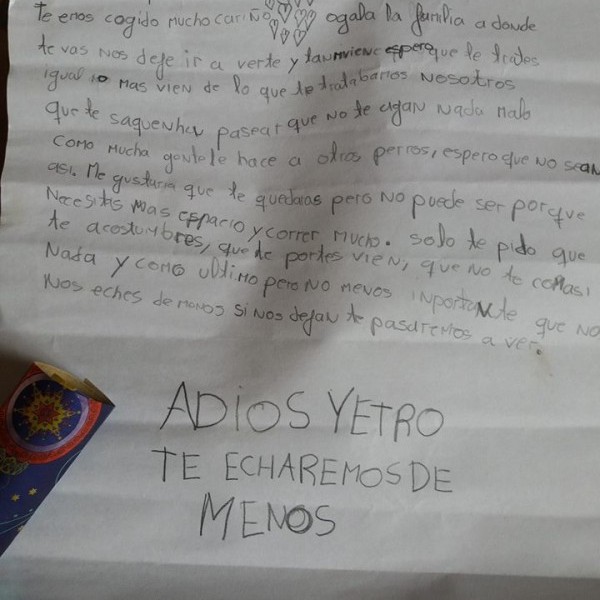 te emos cogido mucho cariño ogala la familia a donde
te vas nos deje ir a verte y tamvien espero que te trates
igual o mas vien de lo que te tratabamos nosotros
que te saquen ha pasear que no te agan nada malo
como mucha gente le hace a otros perros, espero que no sean
asi. Me gustaria que te quedaras pero no puede ser porque
necesitas mas espacio y correr mucho. solo te pido que
te acostumbres, que te portes vien, que no te comas
nada y como ultimo pero no menos inportante que no
nos eches de menos si nos dejan te pasaremos a ver.
ADIOS YETRO
TE ECHAREMOS DE
MENOS